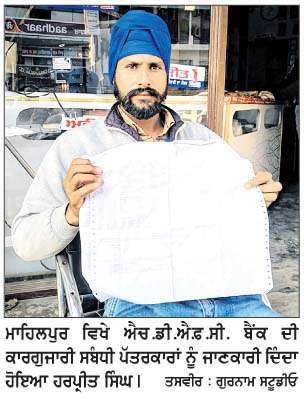 aadhaar
ਮਾਹਿਲਪੁਰ ਵਿਖੇ ਐਚ.ਡੀ.ਐਫ਼.ਸੀ. ਬੈਂਕ ਦੀ
ਕਾਰਗੁਜਾਰੀ ਸਬੰਧੀ ਪੱਤਰਕਾਰਾਂ ਨੂੰ ਜਾਣਕਾਰੀ ਦਿੰਦਾ
ਹੋਇਆ ਹਰਪ੍ਰੀਤ ਸਿੰਘ। ਤਸਵੀਰ : ਗੁਰਨਾਮ ਸਟੂਡੀਓ